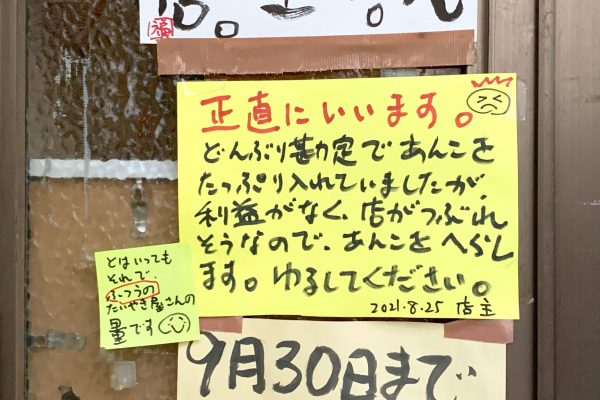 福
正直にいいます。
どんぶり勘定であんこを
たっぷり入れていましたが、
利益がなく、店がつぶれ
そうなので、あんこをへらし
ます。ゆるしてください。
2021.8.25 店主
とはいっても
それで、
ふつうの
たいやき屋さんの
量です
9月30日まで